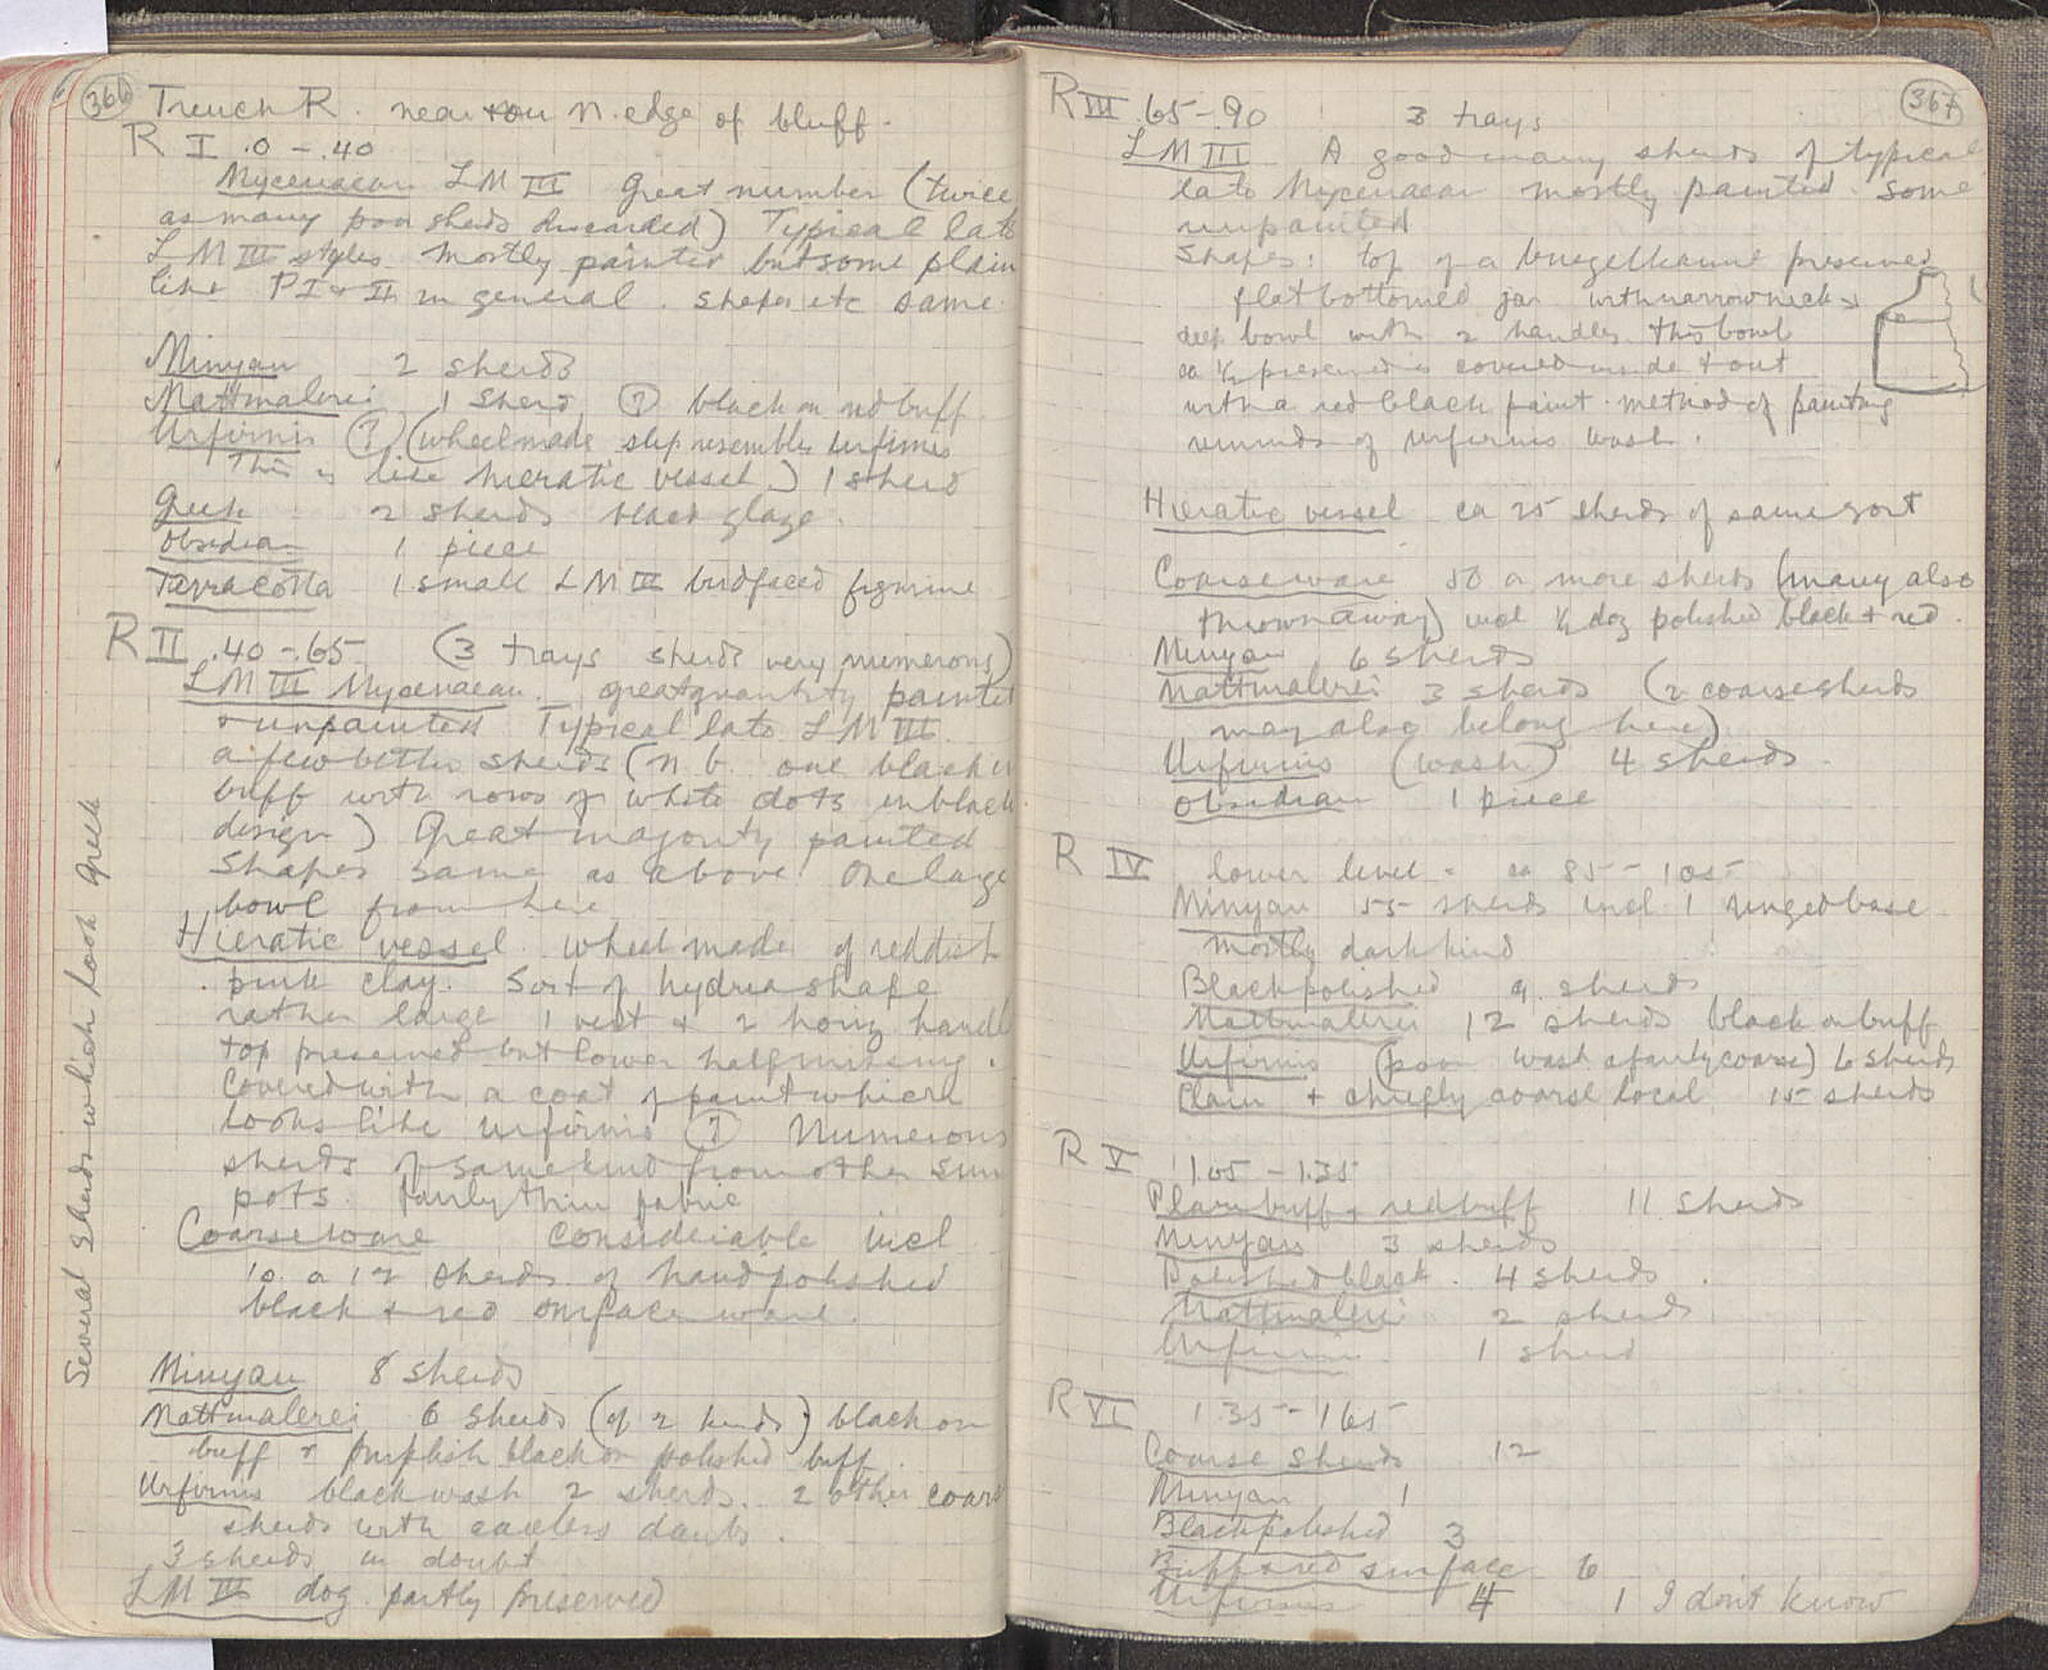 366
Trench R. near n. edge of bluff.
R I .0 - .40
Mycenaean LM III Great number (twice
as many poor sherds discarded) Typical late
LM III styles mostly painted but some plain
like PI & II in general. shapes etc same
Minyan 2 sherds
Mattmalerei 1 sherd (?) black on red buff
Urfirnis (?) (wheelmade slip resembles urfirnis
This is like hieratic vessel) 1 sherd
Greek 2 sherds black glaze.
Obsidian 1 piece
Terracotta 1 small LM III birdfaced figurine
R II .40 - .65 (3 trays sherds very numerous)
LM III Mycenaean. great quantity painted
& unpainted Typical late LM III
a few better sherds (n b. one black
buff with rows of white dots in black
design) Great majority painted
Shapes same as above. One large
bowl from here
Hieratic vessel. Wheel made of reddish
pink clay. Sort of hydria shape
rather large 1 vert & 2 horiz handl
top preserved but lower half missing.
Covered with a coat of paint which
looks like urfirnis (?) Numerous
sherds of same kind from other
pots. fairly thin fabric
Coarse ware considerable incl
10 or 12 sherds of hand polished
black & red surface ware.
Minyan 8 sherds
Mattmalerei 6 sherds (of 2 kinds) black on
buff & purplish black on polished buff.
Urfirnis black wash 2 sherds. 2 other coarse
sherds with careless daubs.
3 sherds in doubt
LM III dog partly preserved
Several sherds which look Greek
367
R III .65 - .90 3 trays
LM III A good many sherds of typical
late Mycenaean mostly painted. some
unpainted
Shapes: top of a buegelkanne preserved
flat bottomed jar with narrow neck
deep bowl with 2 handles. this bowl
ca ½ preserved is covered inside & out
with a red black paint. method of painting
reminds of urfirnis wash.
Hieratic vessel ca 25 sherds of same sort
Coarse ware 50 or more sherds (many also
thrown away) incl ½ doz polished black & red.
Minyan 6 sherds
Mattmalerei 3 sherds (2 coarse sherds
may also belong here)
Urfirnis (wash) 4 sherds.
Obsidian 1 piece
R IV lower level = ca 85 - 105
Minyan 55 sherds incl 1 ringed base
mostly dark kind
Black polished 9 sherds
Mattmalerei 12 sherds black on buff
Urfirnis (poor wash & fairly coarse) 6 sherds
Plain & chiefly coarse local 15 sherds
R V 1.05 - 1.35
Plain buff & red buff 11 sherds
Minyan 3 sherds
Polished black. 4 sherds.
Mattmalerei 2 sherds
Urfirnis 1 sherd
R VI 1.35 - 1.65
Coarse sherds 12
Minyan 1
Black polished 3
Buff & red surface 6
Urfirnis 4 1 I don't know